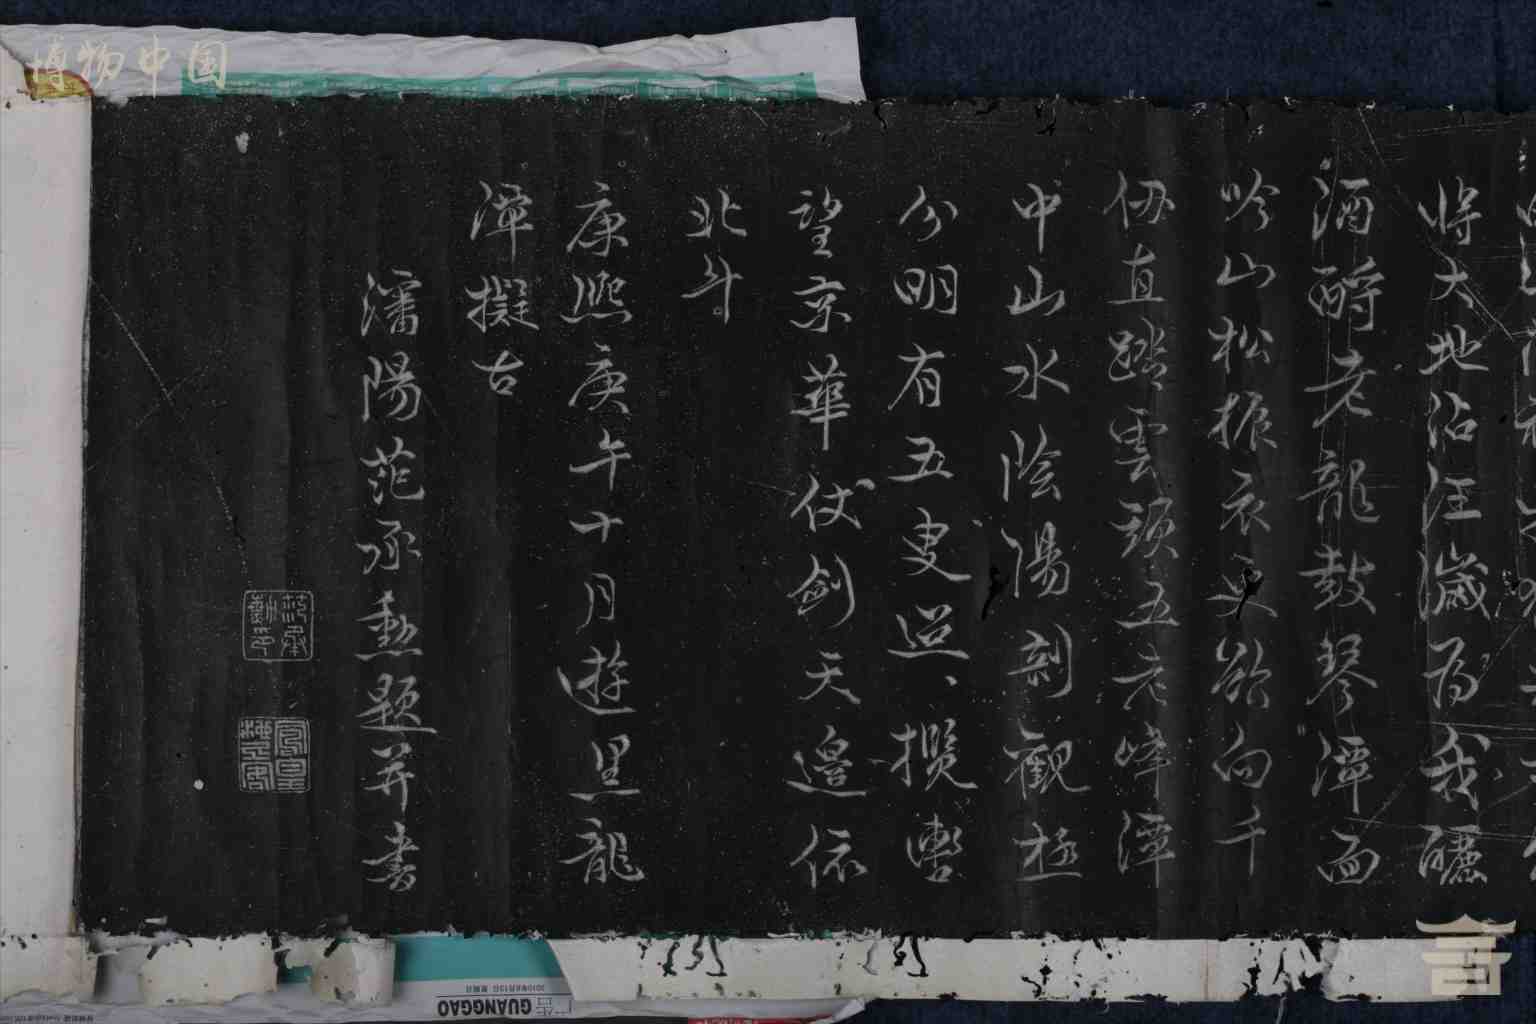 將大地沾汪濊為我釃
酒酹老龍鼓琴潭面
吟山松振衣更欲向千
仞直踏雲頭五老峰潭
中山水陰陽割觀極
分明有五叟迢、攬轡
望京華伏劍天邊依
北斗
康熙庚午十月遊黑龍
潭擬古
瀋陽范承勳題并書
范承勳印
博物中国
广告
GUANGGAO